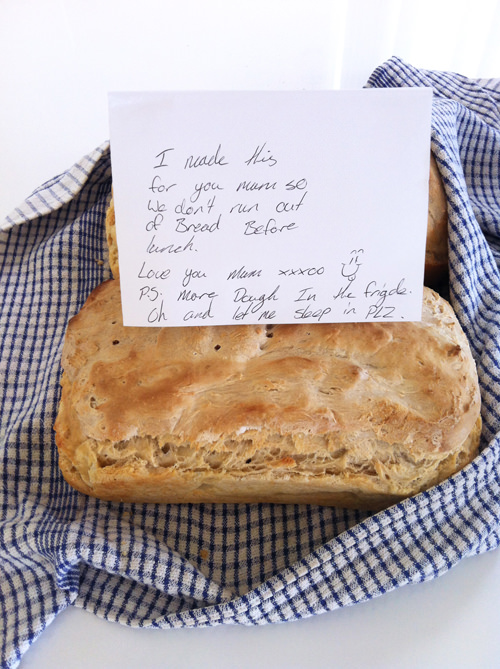 I made this
for you mum so
We don't run out
of Bread Before
lunch.
Love you mum xxxoo
P.S. more Dough In the frigde.
Oh and let me sleep in PLZ.